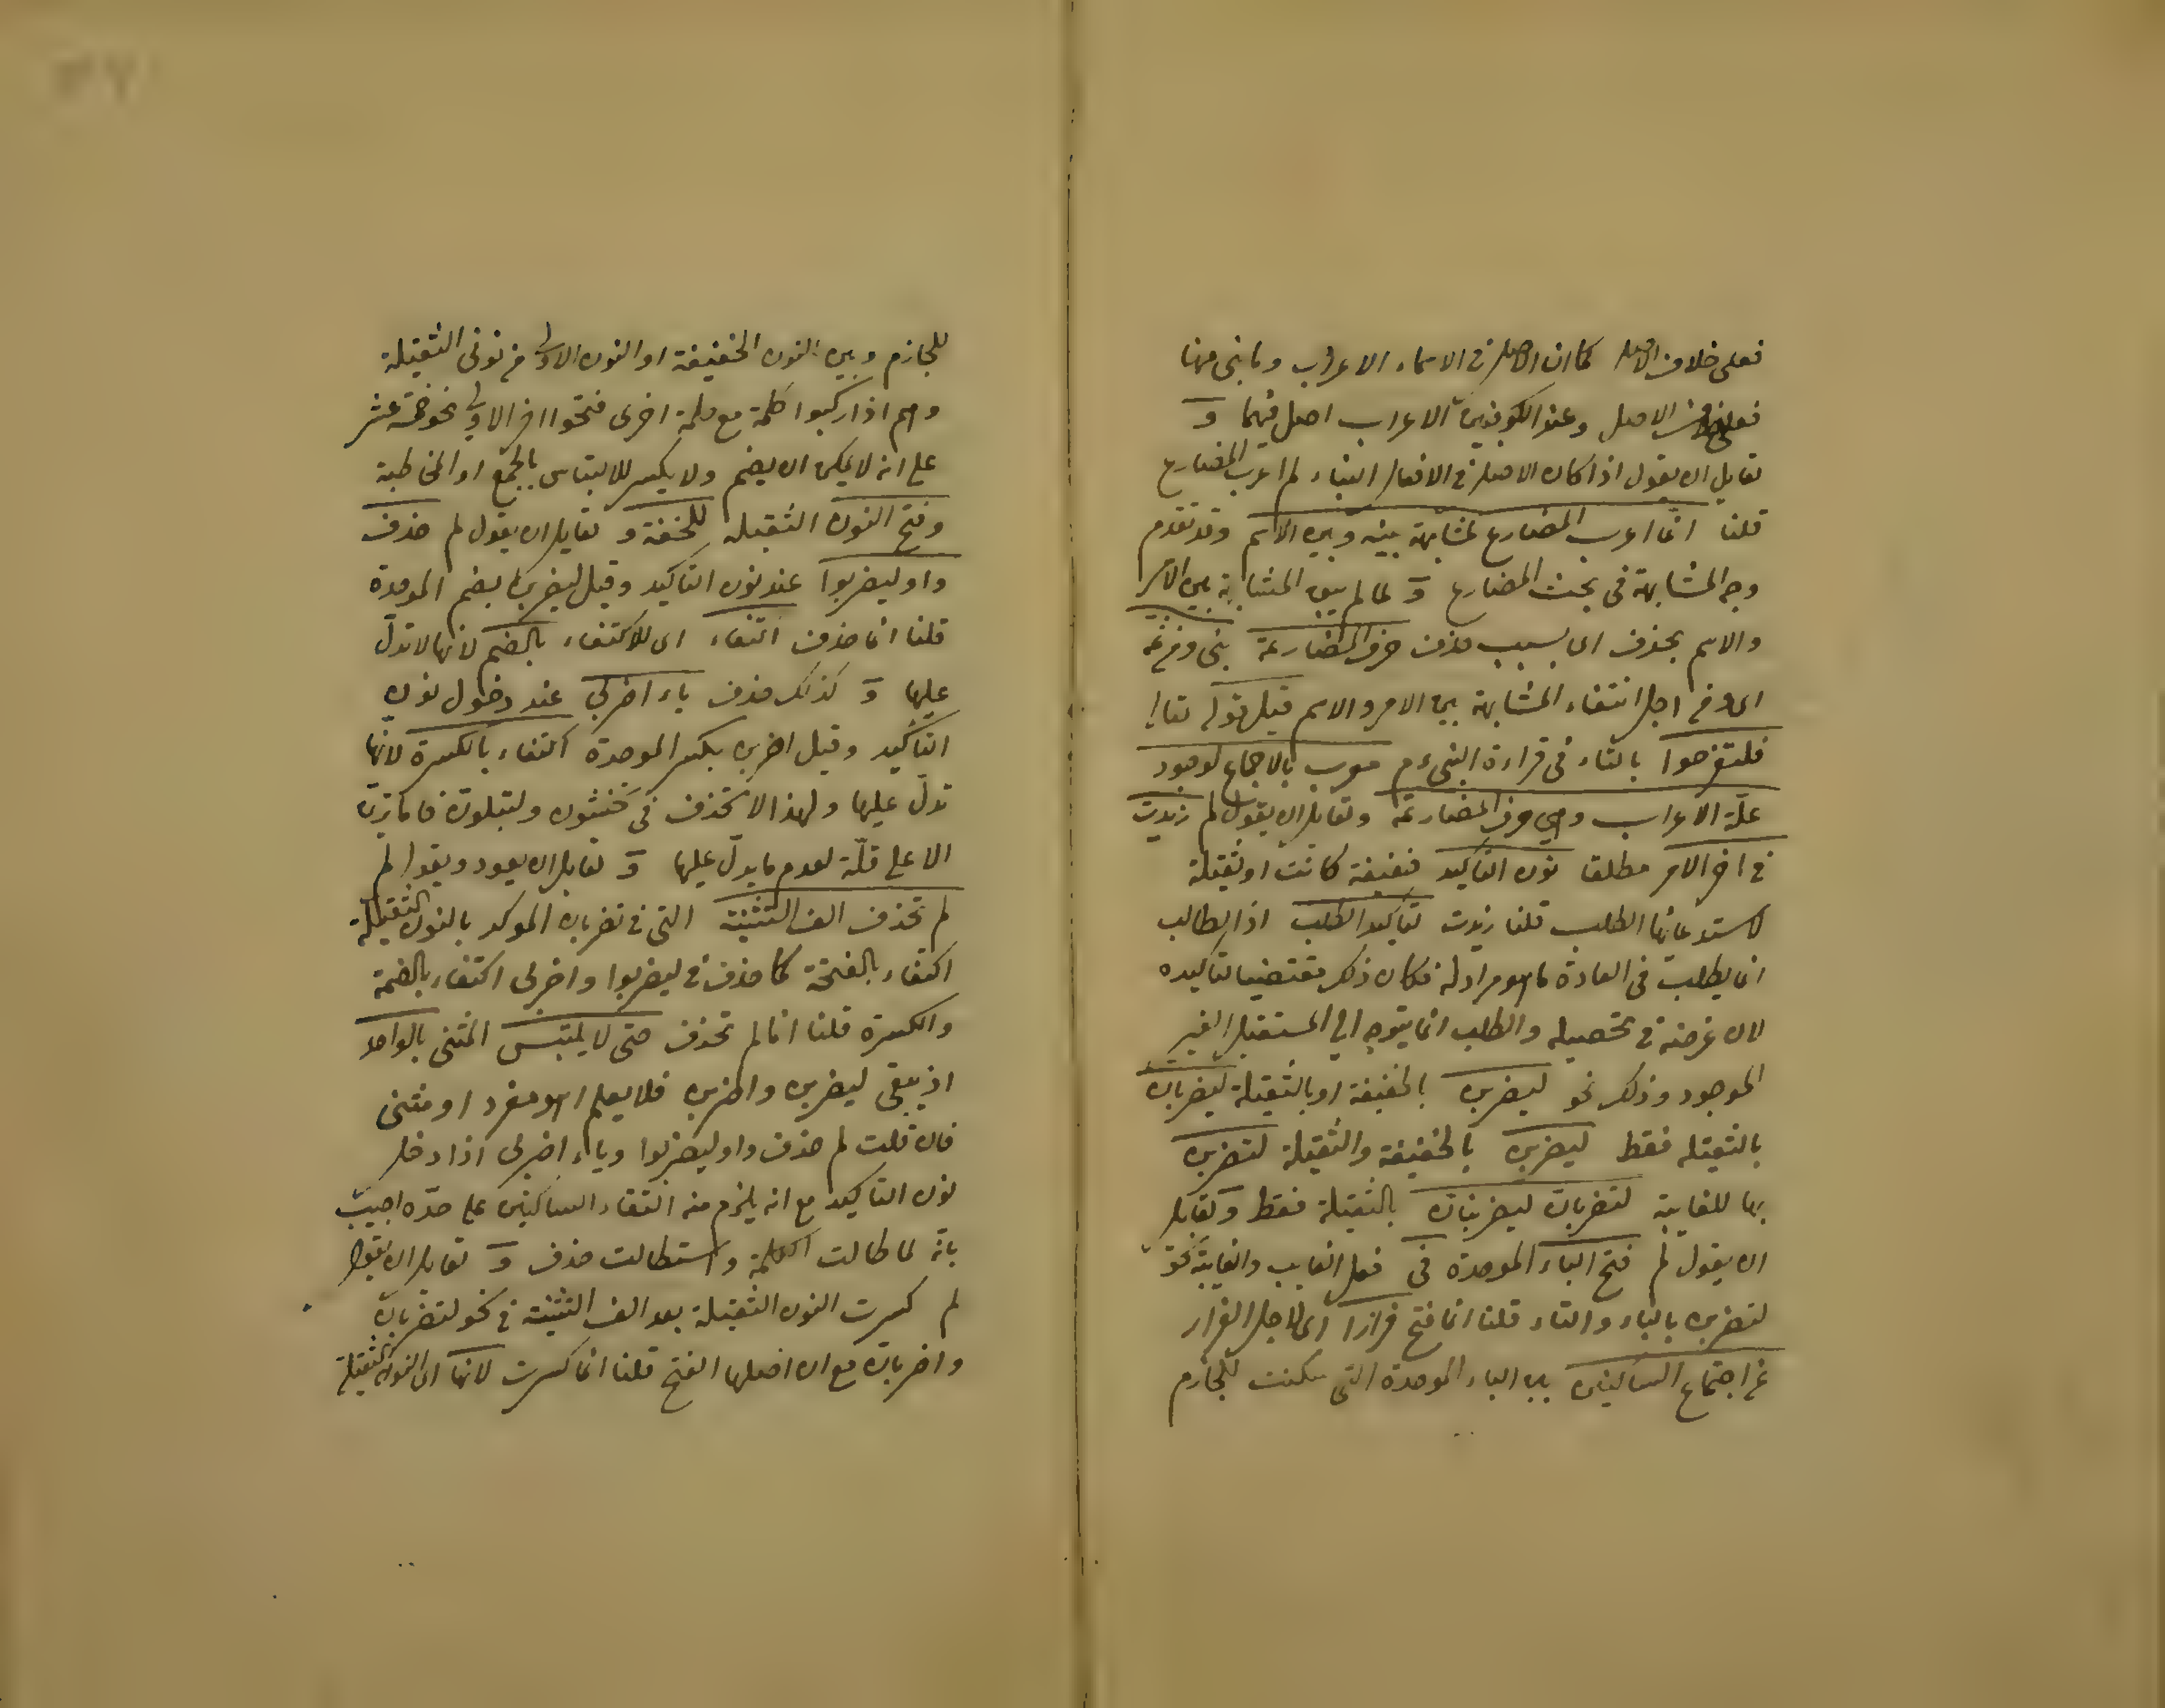 فعلى خلاف الاصل كما ان الاصل في الاسماء الاعراب وما بنى منها
فعلى خلاف الاصل وعند الكوفيين الاعراب اصل فيهما و
لقايل ان يقول اذا كان الاصل في الافعال البناء لم اعرب المضارع
قلنا انما اعرب المضارع لمشابهة بينه وبين الاسم وقد تقدم
وجه المشابهة في بحث المضارع و لما لم يبق المشابهة بين الامر
والاسم بحذف اى بسبب حذف حرف المضارعة بنى ومن ثمه
اى ومن اجل انتفاء المشابهة بين الامر والاسم قيل قوله تعالى
فلتفرحوا بالتاء في قراءة النبي ءم معرب بالاجماع لوجود
علّة الاعراب وهي حرف المضارعة ولقايل ان يقول لم زيدت
في اخر الامر مطلقا نون التأكيد خفيفة كانت او ثقيلة
لاستدعائها الطلب قلنا زيدت لتأكيد الطلب اذ الطالب
انما يطلب في العادة ما هو مراد له فكان ذلك مقتضيا لتأكيده
لان غرضه في تحصيله والطلب انما يتوجه الى المستقبل الغير
الموجود وذلك نحو ليضربن بالخفيفة او بالثقيلة ليضربانّ
بالثقيلة فقط ليضربن بالخفيفة والثقيلة لتضربن
بها للغايبة لتضربانّ ليضربنانّ بالثقيلة فقط ولقايل
ان يقول لم فتح الباء الموحدة في فعل الغايب والغايبة نحو
لتضربن بالياء والتاء قلنا انما فتح فرارا اى لاجل الفرار
عن اجتماع الساكنين بين الباء الموحدة التى سكنت للجازم
للجازم وبين النون الخفيفة او النون الاولى من نونى الثقيلة
وهم اذا ركبوا كلمة مع كلمة اخرى فتحوا اخر الاولى نحو خمسة عشر
على انه لا يمكن ان يضم ولا يكسر للالتباس بالجمع او المخاطبة
وفتح النون الثقيلة للخفة و لقايل ان يقول لم حذف
واو ليضربوا عند نون التأكيد وقيل ليضربن بضم الموحدة
قلنا انما حذف اكتفاء اى للاكتفاء بالضم لانها لا تدلّ
عليها و كذلك حذف ياء اضربي عند دخول نون
التأكيد وقيل اضربن بكسر الموحدة اكتفاء بالكسرة لانها
تدلّ عليها ولهذا لا تحذف في تخشون ولتبلونّ فاما ترين
الا على قلّة لعدم ما يدلّ عليها و لقايل ان يعود ويقول لم
لم تحذف الف التثنية التى في تضربان الموكد بالنون الثقيلة
اكتفاء بالفتحة كما حذف في ليضربوا واضربى اكتفاء بالضمة
والكسرة قلنا انما لم تحذف حتى لا يلتبس المثنى بالواحد
اذ يبقى ليضربن واضربن فلا يعلم اهو مفرد او مثنى
فان قلت لم حذف واو ليضربوا وياء اضربى اذا دخل
نون التأكيد مع انه يلزم منه التقاء الساكنين على حدّه اجيب
بانّه لما طالت الكلمة واستطالت حذف و لقايل ان يقول
لم كسرت النون الثقيلة بعد الف التثنية في نحو لتضربانّ
واضربانّ مع ان اصلها الفتح قلنا انما كسرت لانها اى النون الثقيلة